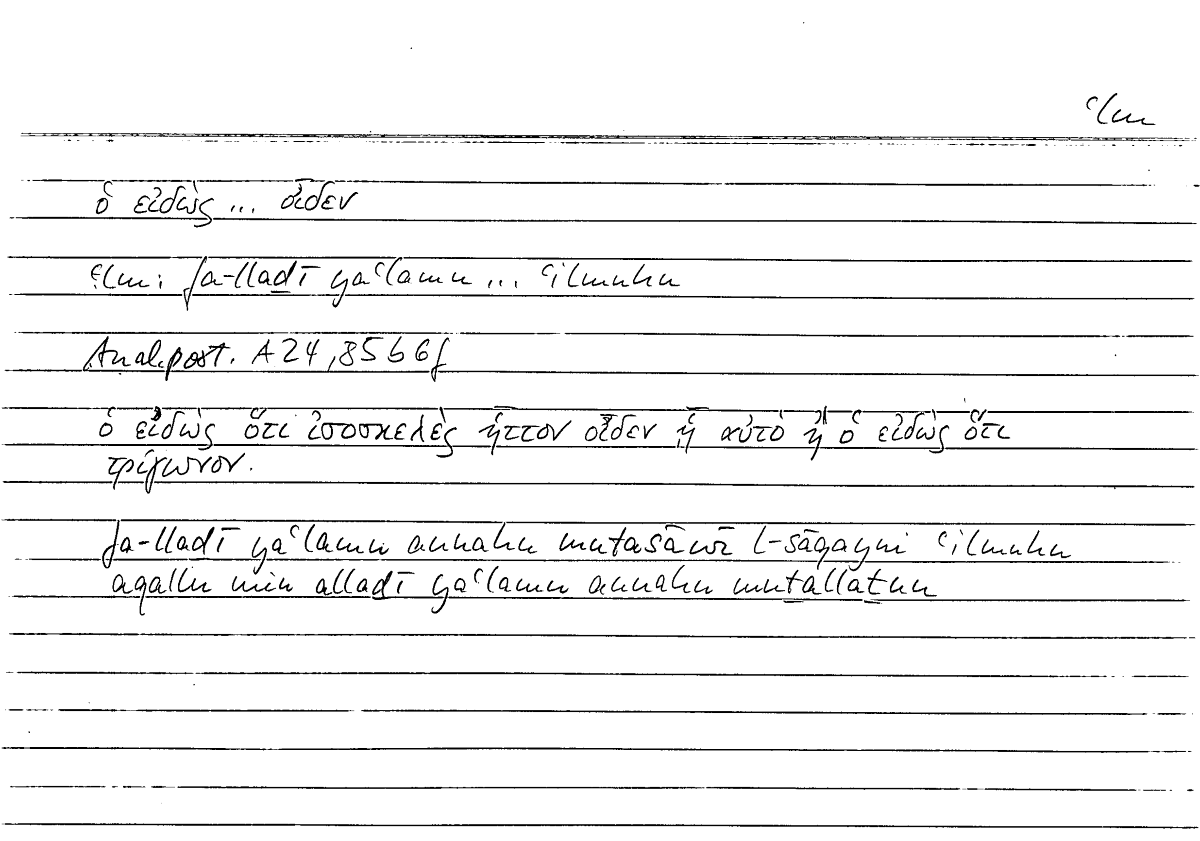 ʿlm
ὁ εἰδὼς ... οἶδεν
ʿlm: fa-lladī yaʿlamu ... ʿilmuhu
Anal.post. A24,85b6f
ὁ εἰδὼς ὅτι ἰσοσκελὲς ἧττον οἶδεν ᾗ αὐτὸ ἢ ὁ εἰδὼς ὅτι
τρίγωνον.
fa-lladī yaʿlamu annahu mutasāwī l-sāqayni ʿilmuhu
aqallu min allaḏī yaʿlamu annahu muṯallaṯun